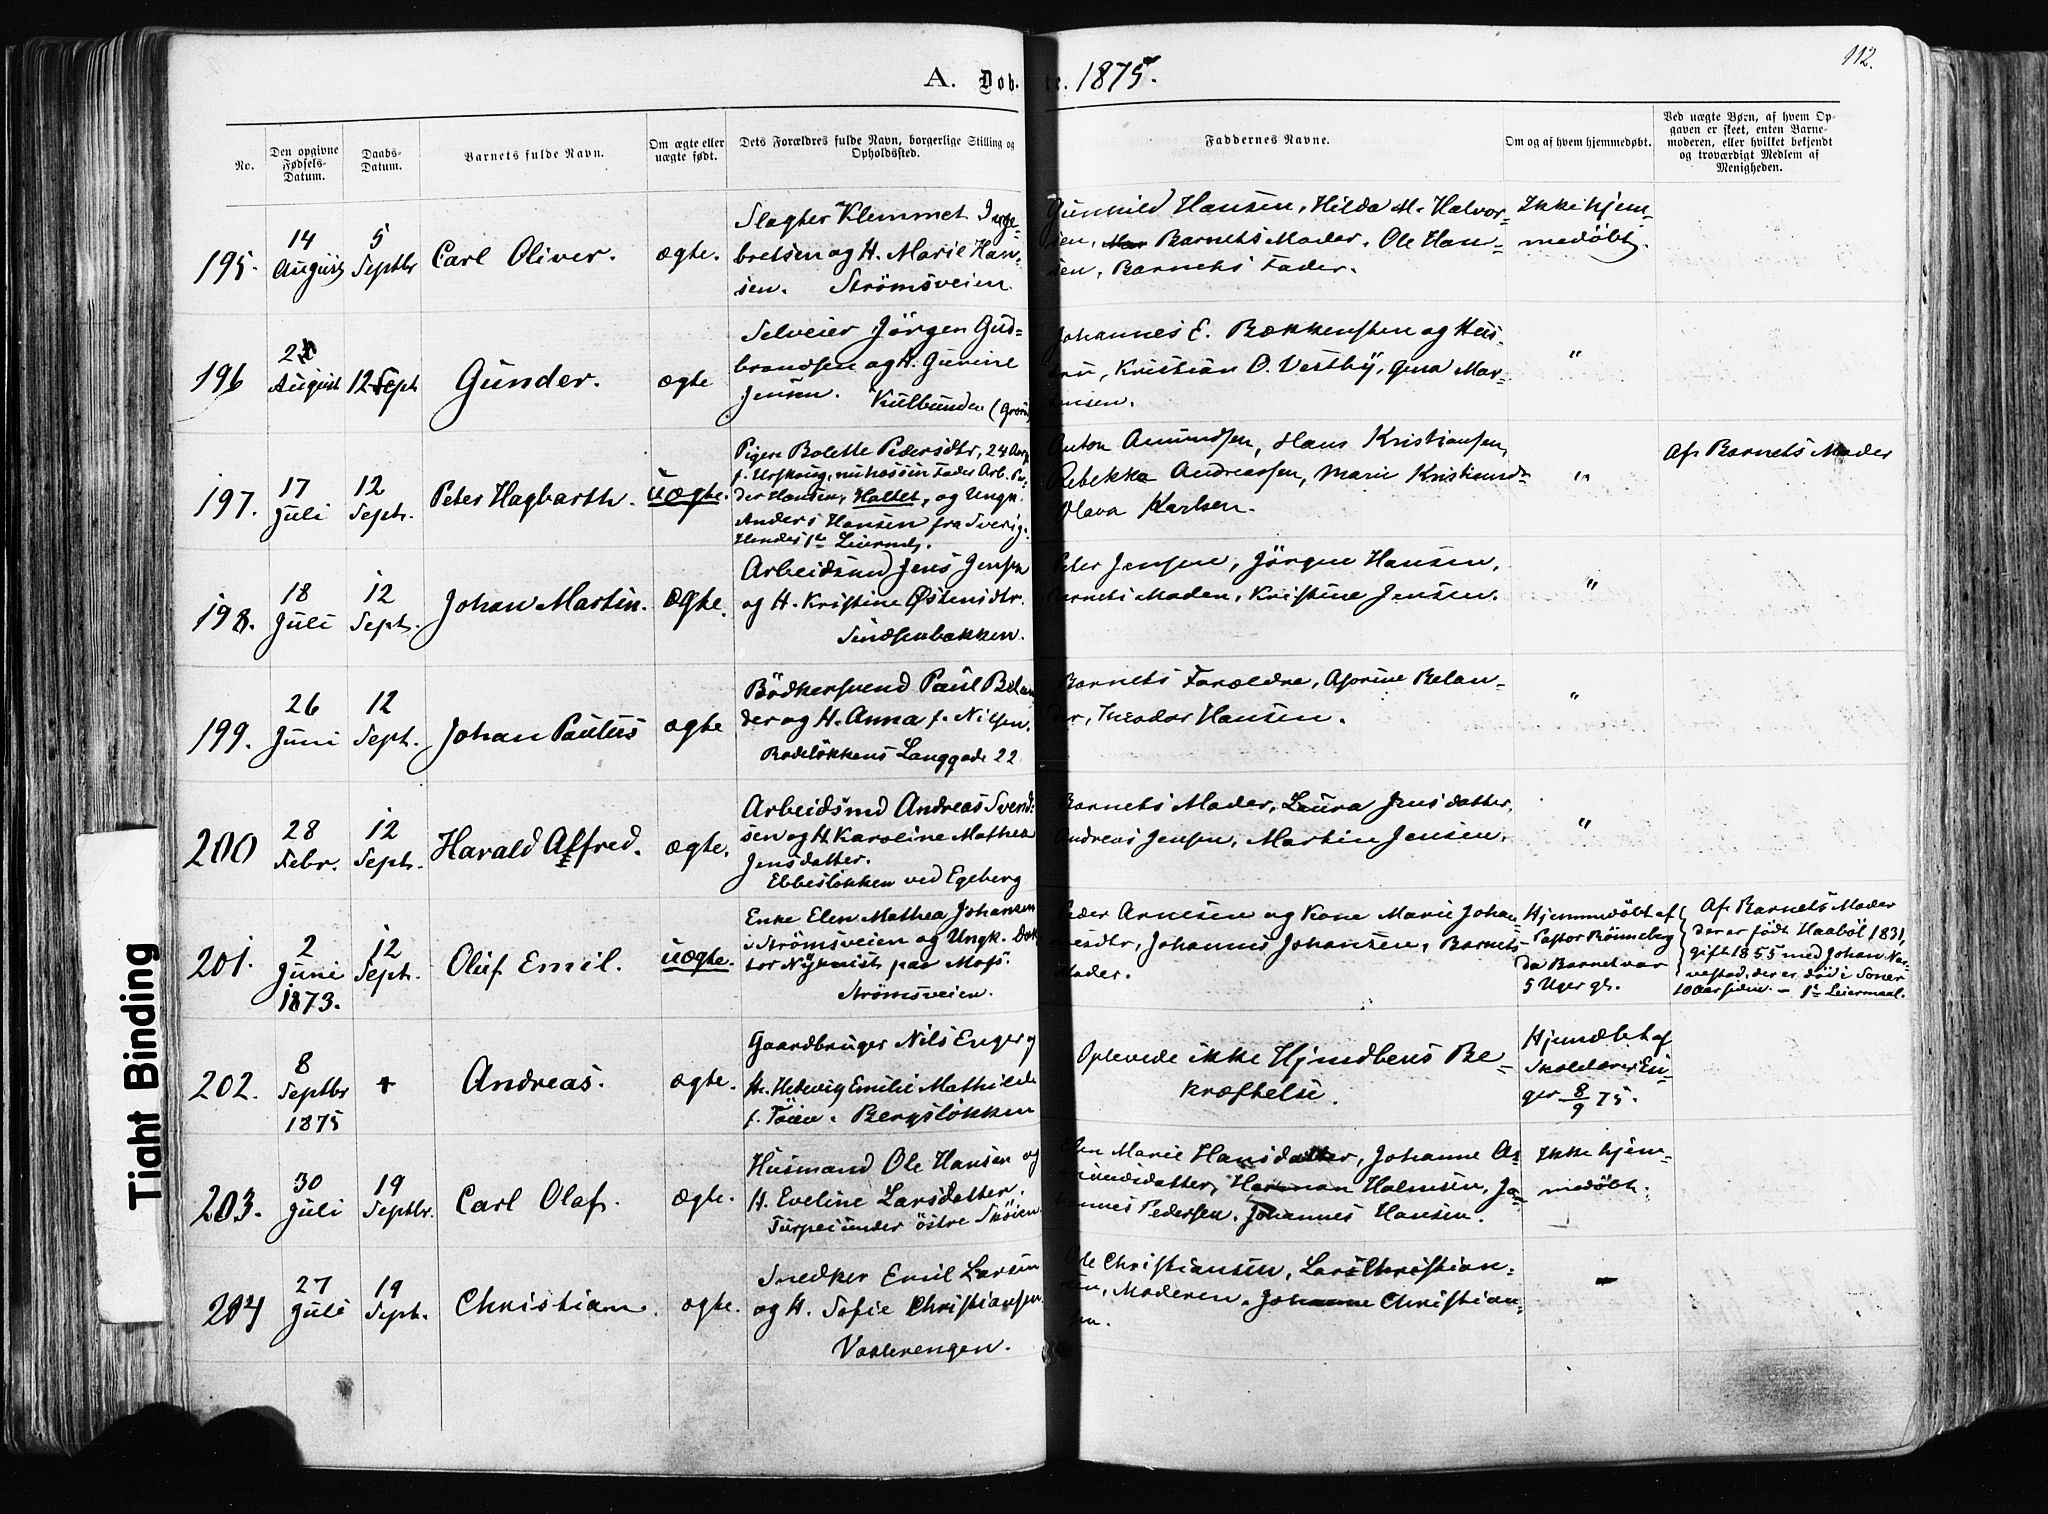 112.
A. Døb. te. 1875.
No.
Den opgivne Fødsels-Datum.
Daabs-Datum.
Barnets fulde Navn.
Om ægte eller uægte født.
Dets Forældres fulde Navn, borgerlige Stilling og Opholdssted.
Faddernes Navne.
Om og af hvem hjemmedøbt.
Ved uægte Børn, af hvem Opgaven er skeet, enten Barnemoderen, eller hvilket bekjendt og troværdigt Medlem af Menigheden.
195.
14 August
5 Septbr
Carl Oliver.
ægte.
Slagter Klemmet Inge-
bretsen og H. Marie Han-
sen. Strömsveien.
Gunhild Hansen, Hilda M. Halvor-
sen, Barnets Moder. Ole Han-
sen, Barnets Fader.
Ikke hjem-
medöbt.
196
August
12 Sept
Gunder.
ægte
Selveier Jörgen Gud-
brandsen og H. Gurine
Jensen. Kulbunden
Johannes E. Bækkensten og Hus-
tru, Kristian O. Vestby, Gina Mar-
tinsen.
"
197.
17 Juli
12 Sept.
Peter Hagbarth.
uægte.
Pigen Bolette Pedersdtr, 24 Aar,
f. Urskoug, nu hos sin Fader Arb. Pe-
der Hansen, Haltet, og Ungk.
Anders Hansen fra Sverig.
Hendes 1te Leiermaal.
Anton Amundsen, Hans Kristiansen,
Rebekka Andreassen, Marie Kristiansd.
Olava Karlsen.
"
Af Barnets Moder
198.
18 Juli
12 Sept.
Johan Martin.
ægte.
Arbeidsmd Jens Jensen
og H. Kristine Østensdtr.
Sindsenbakken.
Peter Jensen, Jörgen Hansen,
Barnets Moder, Kristine Jensen.
"
199.
26 Juni
12 Sept.
Johan Paulus
ægte
Bödkersvend Paul Belan-
der og H. Anna f. Nilsen.
Rodelökkens Langgade 22
Barnets Forældre, Asorine Belan-
der, Theodor Hansen.
"
200
28 Febr.
12 Sept.
Harald Alfred.
ægte.
Arbeidsmd Andreas Svend-
sen og H Karoline Mathea
Jensdatter.
Ebbeslökken ved Egeberg
Barnets Moder, Laura Jensdatter,
Andreas Jensen, Martin Jensen.
"
201.
2 Juni 1873.
12 Sept.
Oluf Emil.
uægte.
Enke Elen Mathea Johansen
i Strömsveien og Ungk. Dok-
tor Nyquist paa Moss.
Strömsveien.
Peder Arnesen og Kone Marie Johan-
nesdtr, Johannes Johansen, Barnets
Moder.
Hjemmedöbt af
Pastor Rönneberg
da Barnet var
5 Uger gl.
Af Barnets Moder
der er född Haaböl 1831,
gift 1855 med Johan
der er död i
10 Aar siden. – 1te Leiermaal.
202.
8 Septbr 1875
+
Andreas.
ægte.
Gaardbruger Nils Enger og
H. Hedevig Emilie Mathilde
f. Töien. Bergslökken
Oplevede ikke Hjmdbens Be-
kræftelse.
Hjemdbt af
Skolelærer En-
ger 8/9 75.
203.
30 Juli
19 Septbr.
Carl Olaf.
ægte.
Husmand Ole Hansen og
H. Eveline Larsdatter.
Turpei under östre Sköien
Elen Marie Hansdatter, Johanne
Herman Holmsen, Jo-
hannes Pedersen. Johannes Hansen.
Ikke hjem-
medöbt.
204
27 Juli
19 Sept.
Christian.
ægte.
Snedker Emil Larsen
og H. Sofie Christiansen
Vaalerengen.
Ole Christiansen, Lars Christian-
sen, Moderen. Johanne Christian-
sen.
–
Tight Binding